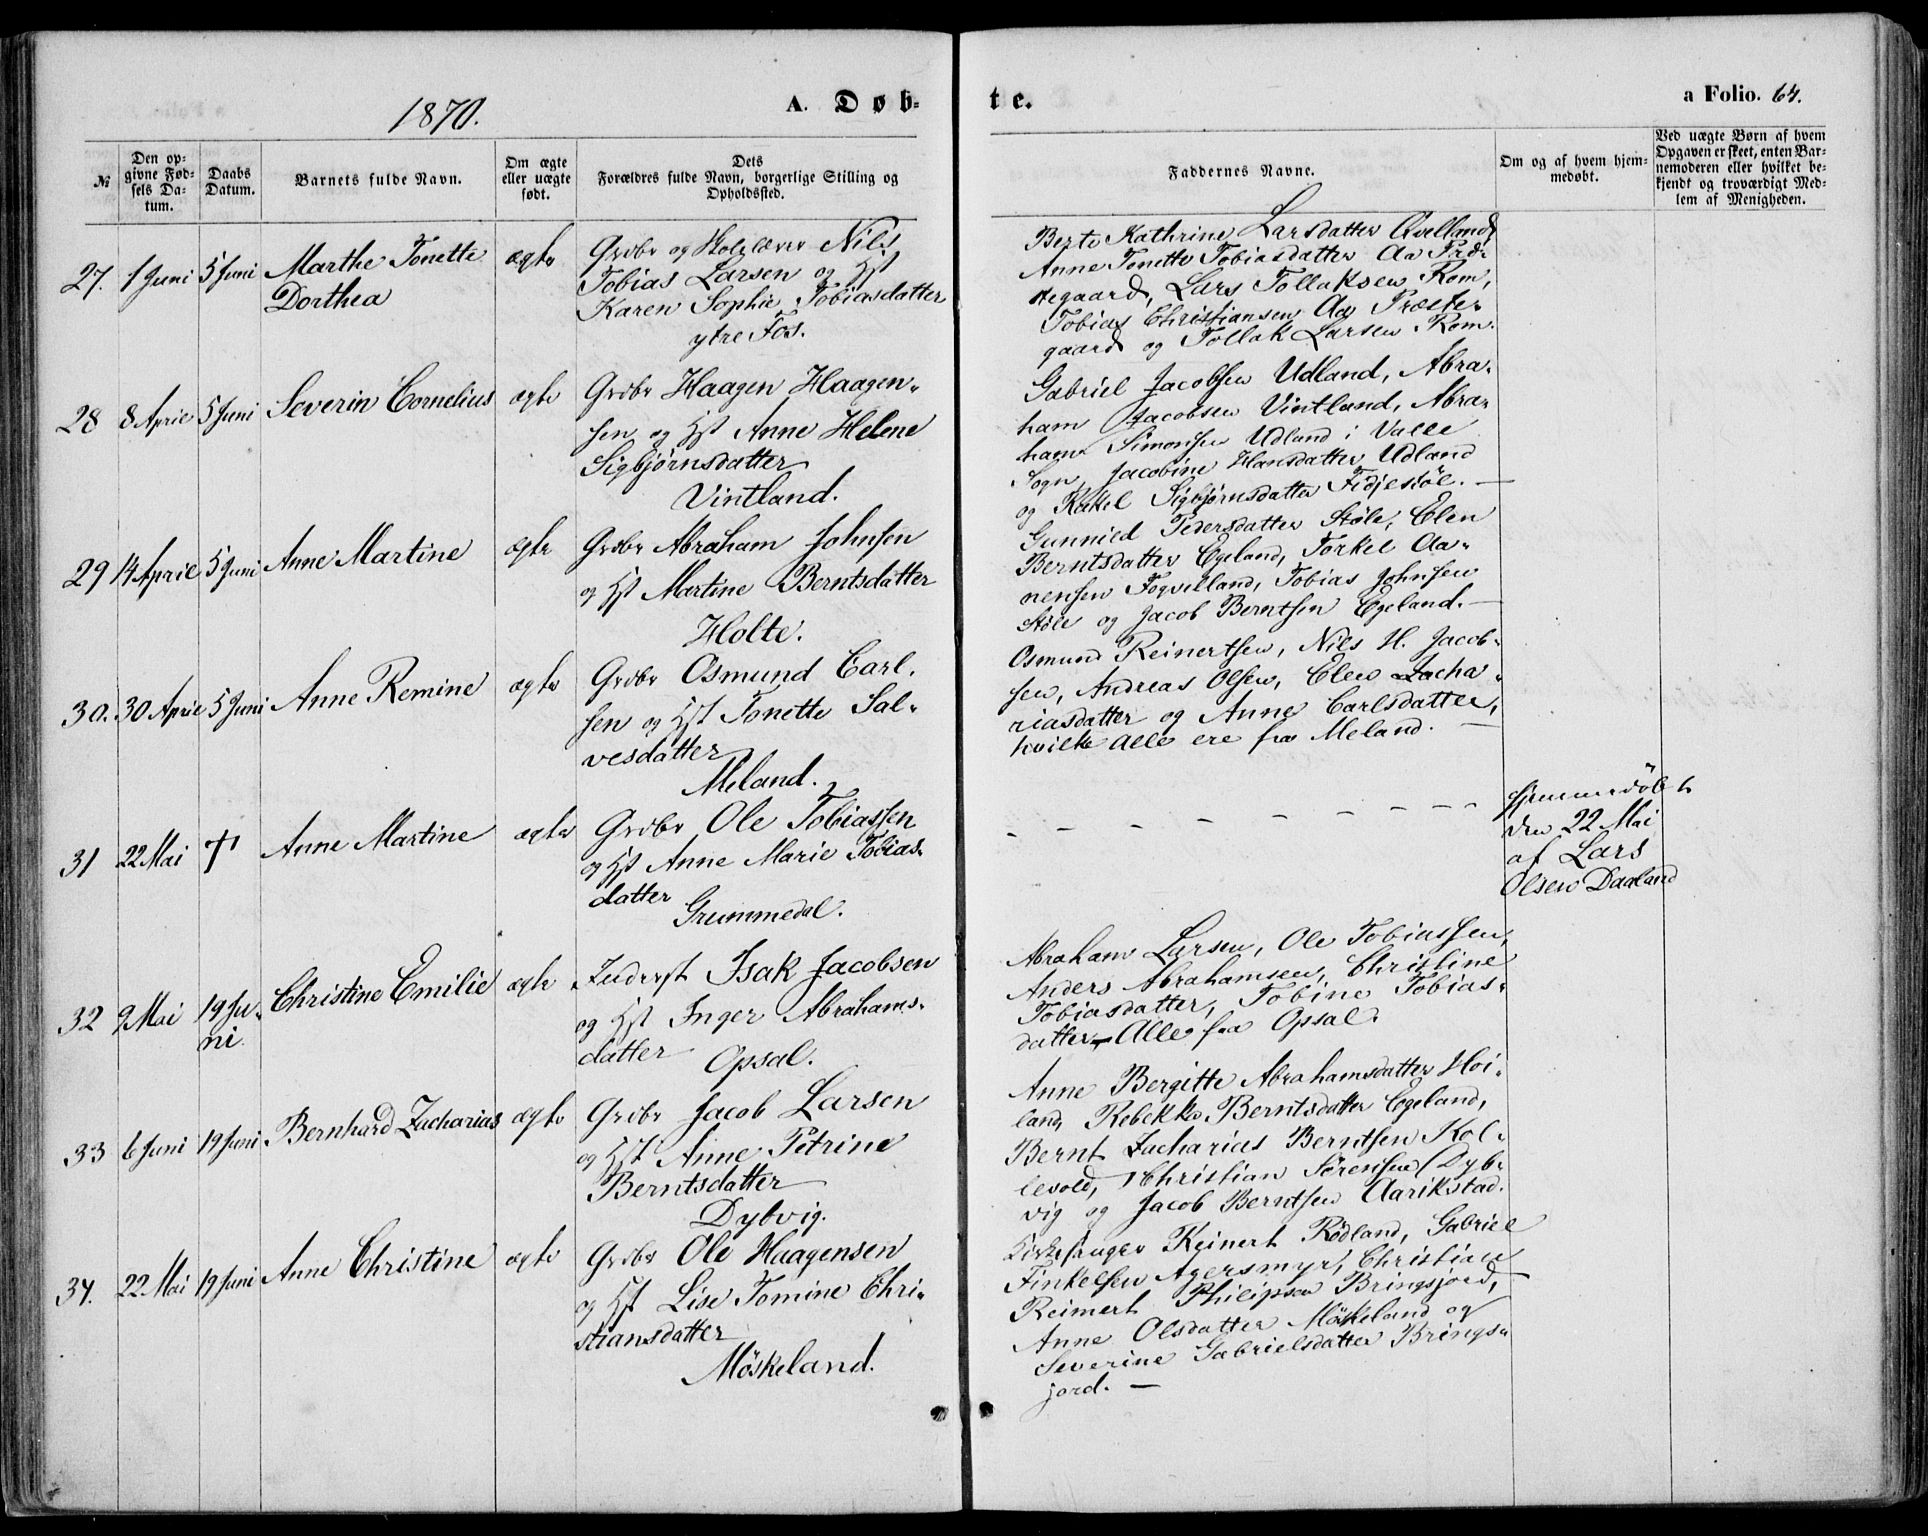 1870.
A. Døb-
te.
a Folio. 64.
№
Den op-
givne Fød-
sels Da-
tum.
Daabs
Datum.
Barnets fulde Navn.
Om ægte
eller uægte
født.
Dets
Forældres fulde Navn, borgerlige Stilling og
Opholdssted.
Faddernes Navne.
Om og af hvem hjem-
medøbt.
Ved uægte Børn af hvem
Opgaven er skeet, enten Bar-
nemoderen eller hvilket be-
kjendt og troværdigt Med-
lem af Menigheden.
27. 1 Juni 5 Juni Marthe Tonette
Dorthea
ægte
Grdbr og Nils
Tobias Larsen og Hst
Karen Sophie Tobiasdatter
ytre Fos.
Berte Kathrine Larsdatter Qvelland,
Anne Tonette Tobiasdatter Aa Præ-
stegaard, Lars Tollaksen Rom,
Tobias Christiansen Aa Præste-
gaard og Tollak Larsen Rom.
28 8 April 5 Juni Severin Cornelius ægte
Grdbr Haagen Haagen-
sen og Hst Anne Helene
Sigbjørnsdatter
Vintland.
Gabriel Jacobsen Udland, Abra-
ham Jacobsen Vintland, Abra-
ham Simonsen Udland i Valle
Sogn, Jacobine Hansdatter Udland
og Rakel Sigbjørnsdatter Fidjestöl. —
29 14 April 5 Juni Anne Martine ægte
Grdbr Abraham Johnsen
og Hst Martine Berntsdatter
Holte.
Gunnild Pedersdatter Støle, Elen
Berntsdatter Egeland, Torkel Aa-
nensen Fogvelland, Tobias Johnsen
Støle og Jacob Berntsen Egeland. —
30. 30 April 5 Juni Anne Remine ægte
Grdbr Osmund Carl-
sen og Hst Tonette Sal-
vesdatter
Meland.
Osmund Reinertsen, Nils H. Jacob-
sen, Andreas Olsen, Elen Zacha-
riasdatter og Anne Carlsdatter,
hvilke alle ere fra Meland. —
31 22 Mai † Anne Martine ægte
Grdbr Ole Tobiassen
og Hst Anne Marie Tobias-
datter
Grummedal.
– – – – – – – – –
hjemmedöbt
den 22 Mai
af Lars
Olsen Daaland
32 9 Mai 19 Ju-
ni.
Christine Emilie ægte
Inderst Isak Jacobsen
og Hst Inger Abrahams-
datter Opsal.
Abraham Larsen, Ole Tobiassen,
Anders Abrahamsen, Christine
Tobiasdatter, Tobine Tobias-
datter – Alle fra Opsal.
33 6 Juni 19 Juni Bernhard Zacharias ægte
Grdbr Jacob Larsen
og Hst Anne Petrine
Berntsdatter
Dybvig.
Anne Bergitte Abrahamsdatter Høi-
land, Rebekka Berntsdatter Egeland,
Bernt Zacharias Berntsen Kol-
levold, Christian Sørensen Dyb-
vig og Jacob Berntsen Aarikstad.
34. 22 Mai 19 Juni Anne Christine ægte
Grdbr Ole Haagensen
og Hst Lise Tomine Chri-
stiansdatter
Möskeland.
Kirkesanger Reinert Rødland, Gabriel
Finkelsen Agersmyr, Christian
Reimert Philipsen Bringsjord,
Anne Olsdatter Möskeland og
Severine Gabrielsdatter Brings-
jord. —